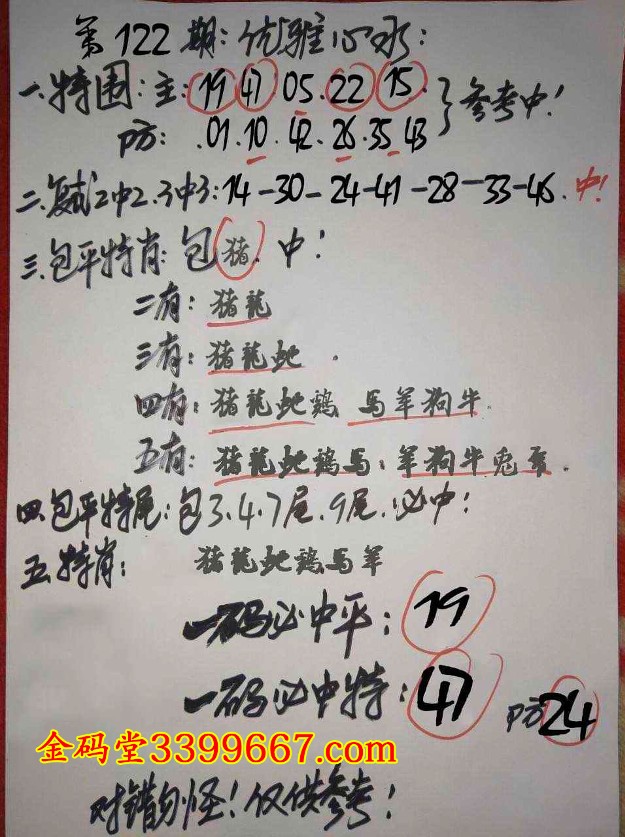 第122期:优雅心水:
一.特围:主:19 47 05.22 15.}参考中!
P方:.01.10.42.26.35 43
二.复试2中2.3中3:14-30-24-41-28-33-46.中!
三.包平特肖:包猪.中!
二肖:猪龍
三肖:猪龍蛇.
四肖:猪龍蛇鷄 馬羊狗牛.
五肖:猪龍蛇鷄馬:羊狗牛兎.
四.包平特尾:包3.4.7尾.9尾.必中!
五.特肖: 猪龍蛇鷄馬羊
一码必中平:19
一码必中特:47 P方24
金码堂3399667.com
对错勿怪!仅供参考!